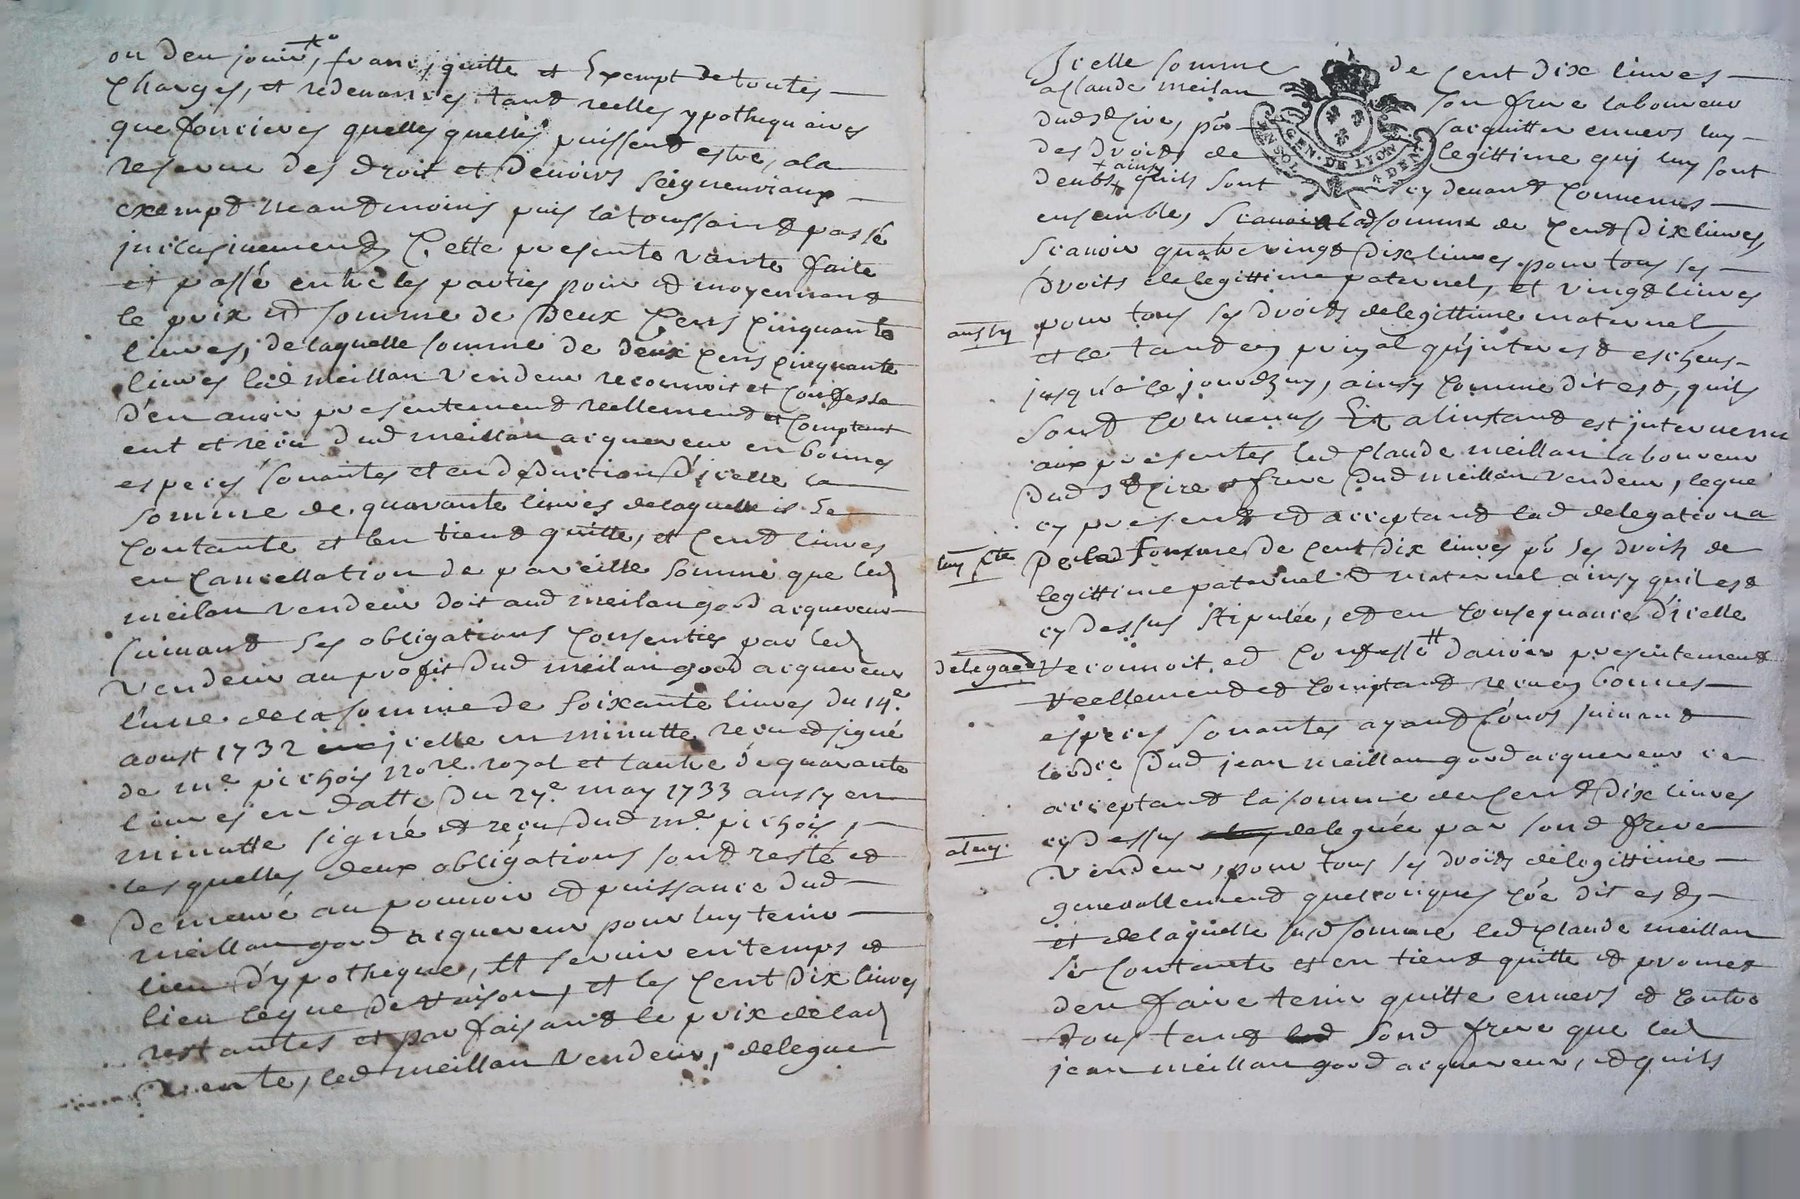 ou d'en jouir, franc, quitte et Exempt de toutes
Charges, et redevances tant reelles ypothequaires
que foncieres quelles quelles puissent estre, a la
reserve des droit et Devoirs seigneuriaux
exempt neantmoins puis la toussaint passé
inclusivement, Cette presente vente faite
et passé entre les parties pour et moyennant
le prix et somme de Deux Cens Cinquante
livres, de laquelle somme de deux cens cinquante
livres led meillan Vendeur reconnoit et Confesse
d'en avoir presentement reellement et Comptant
eut et reçu dud meillan acquereur en bonnes
especes sonantes et en déduction d'icelle la
somme de quarante livres de laquelle il se
Contante et l'en tient quitte, et Cent livres
en Cancellation de pareille somme que led
meilan vendeur doit aud meilan good acquereur
suivant ses obligations Consenties par led
Vendeur au profit dud meilan good acquereur
l'une de la somme de soixante livres du 14e
aoust 1732 icelle en minutte reçu et signé
de me pichois nore royal et l'autre de quarante
livres en datte du 27e may 1733 aussy en
minutte signé et reçu dud me pichois,
les quelles deux obligations sont resté et
demeuré au pouvoir et puissance dud
meillan good acquereur pour luy tenir
lieu d'ypotheque, et servir en temps et
lieu Ce que de raison, et les Cent dix livres
restantes et parfaisant le prix de lad
vente, led meillan vendeur, delegue
Icelle somme de Cent dix livres
a Claude meilan son frere laboureur
dud St Cire, pr s'acquitter envers luy
des droits de legittime qui luy sont
deubs, + ainsy quils sont cy devant Convenus
ensembles, scavoir lad somme de Cent Dix livres,
Scavoir quatre vingt Dix livres pour tous ses
Droits de legittime paternel, et vingt livres
pour tous ses droits de legittime maternel
et ce tant en prinpal qu'interest escheus
jusqu'à ce jourd'huy, ainsy Comme dit est, quils
sont Convenus Et a l'instant est intervenu
aux presentes led Claude meillan laboureur
dud St Cire frere dud meillan vendeur, lequel
cy present et acceptant lad delegation a
luy fte De lad somme de Cent dix livres pr ses droits de
legittime paternel et maternel ainsy quil est
cy dessus stipulée, et en Consequance d'icelle
Reconnoit, et Confesse d'avoir presentement
Reellement et Comptant reçu en bonnes
especes sonantes ayant Cours suivant
dud jean meillan good acquereur ce
acceptant la somme de Cent Dix livres
cy dessus deleguée par sond frere
Vendeur, pour tous ses droits de legittime
generallement quelconques Côe dit est
et de laquelle susd somme led Claude meillan
se Contante et en tient quitte et promet
d'en faire tenir quitte envers et Contre
tous tant sond frere que led
jean meillan good acquereur, et quils
aussy
delegaon
GEN. DE LYON